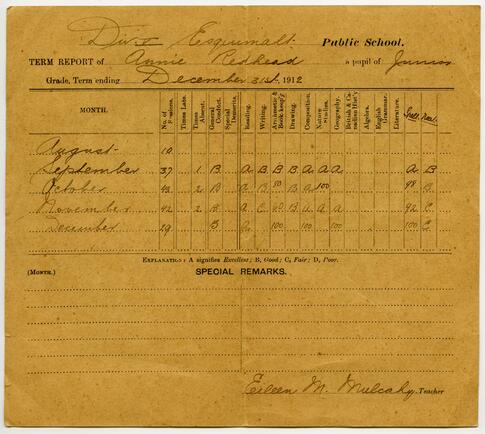 Div. I Esquimalt Public School.
TERM REPORT of Annie Redhead a pupil of Junior
Grade, Term ending December 31st, 1912
MONTH. No. of Sessions. Times Late. Times Absent. General Conduct. Special Demerits. Reading. Writing. Arithmetic & Bookkeep'g Drawing. Composition. Nature Studies. Geography. British & Canadian Hist'y Algebra. English Grammar. Literature. Spell. Neat.
August 10
September 37 1 B A B B B A A A A B
October 43 2 B A B 80 B A 100 98 B
November 42 2 B A C B A A A 92 C
December 29 B 100 100 100 100 C
EXPLANATION: A signifies Excellent; B, Good; C, Fair; D, Poor.
(MONTH.) SPECIAL REMARKS.
Eileen M. Mulcahy, Teacher